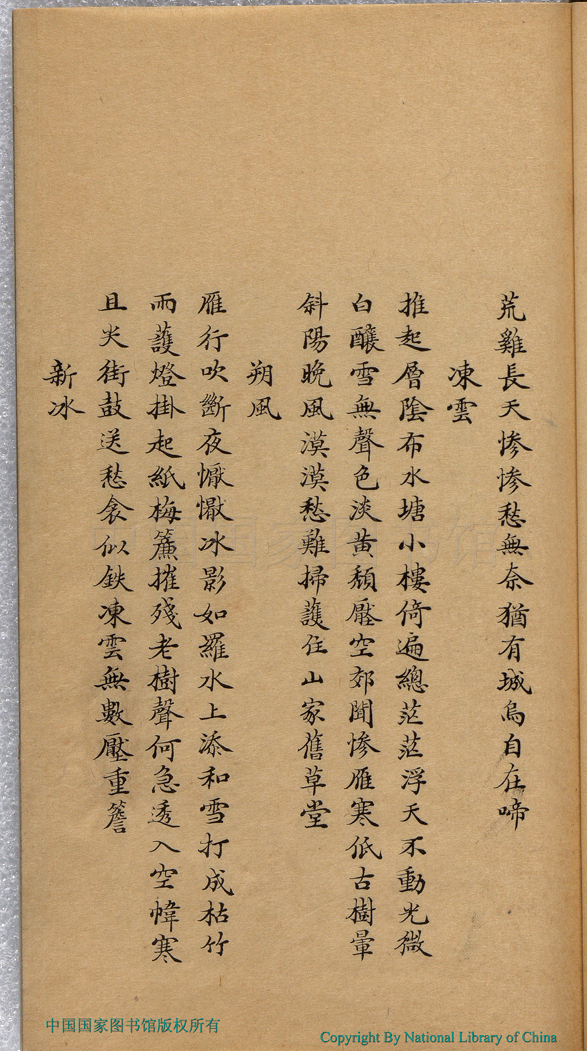 荒雞長天慘慘愁無奈猶有城烏自在啼
凍雲
推起層陰布水塘小樓倚遍總茫茫浮天不動光微
白釀雪無聲色淡黃頹壓空郊聞慘雁寒低古樹暈
斜陽晚風漠漠愁難掃護住山家舊草堂
朔風
雁行吹斷夜懨懨冰影如羅水上添和雪打成枯竹
雨護燈掛起紙梅簾摧殘老樹聲何急透入空幃寒
且尖街鼓送愁衾似鉄凍雲無數壓重簷
新冰
中国国家图书馆版权所有
Copyright By National Library of China